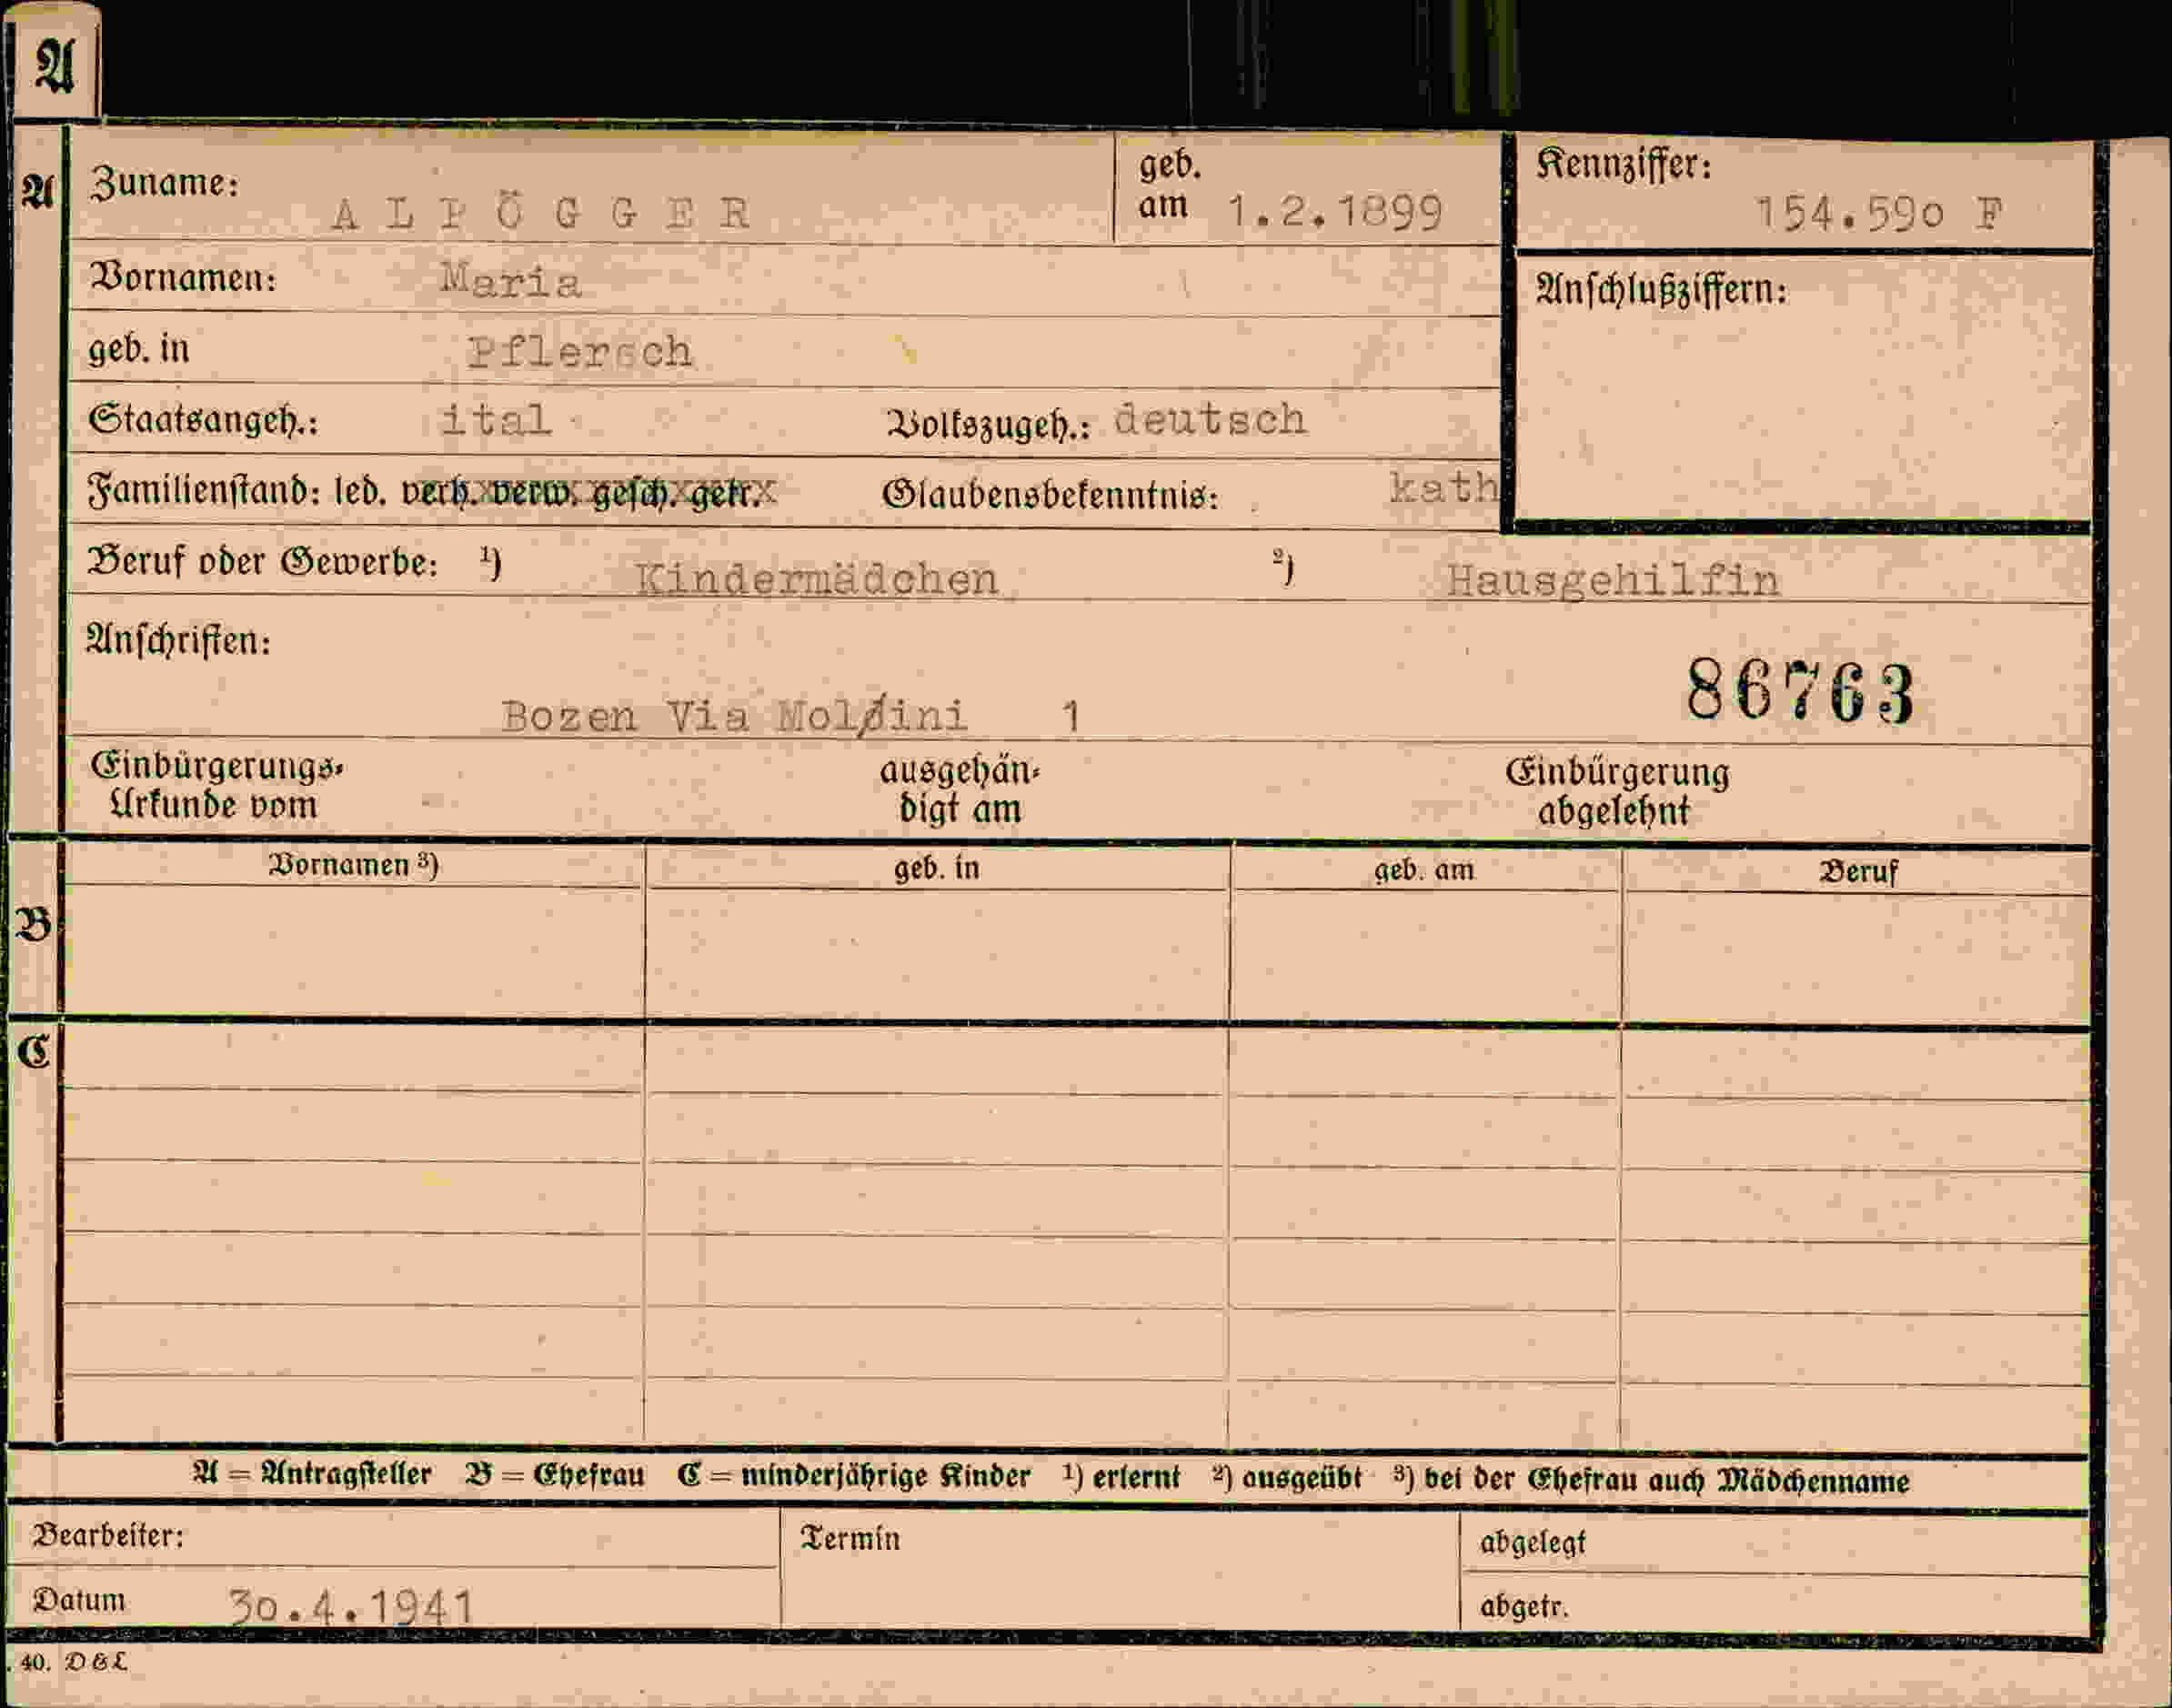 A
A Zuname: ALPÖGGER geb. am 1.2.1899 Kennziffer: 154.590 F
Vornamen: Maria Anschlußziffern:
geb. in Pflersch
Staatsangeh.: ital Volkszugeh.: deutsch
Familienstand: led. verh. verw. gesch. getr. Glaubensbekenntnis: kath
Beruf oder Gewerbe: ¹) Kindermädchen ²) Hausgehilfin
Anschriften:
86763
Bozen Via 1
Einbürgerungs-Urkunde vom ausgehändigt am Einbürgerung abgelehnt
Vornamen ³) geb. in geb. am Beruf
B
C
A = Antragsteller B = Ehefrau C = minderjährige Kinder ¹) erlernt ²) ausgeübt ³) bei der Ehefrau auch Mädchenname
Bearbeiter: Termin abgelegt
Datum 30.4.1941 abgetr.
. 40. D & L